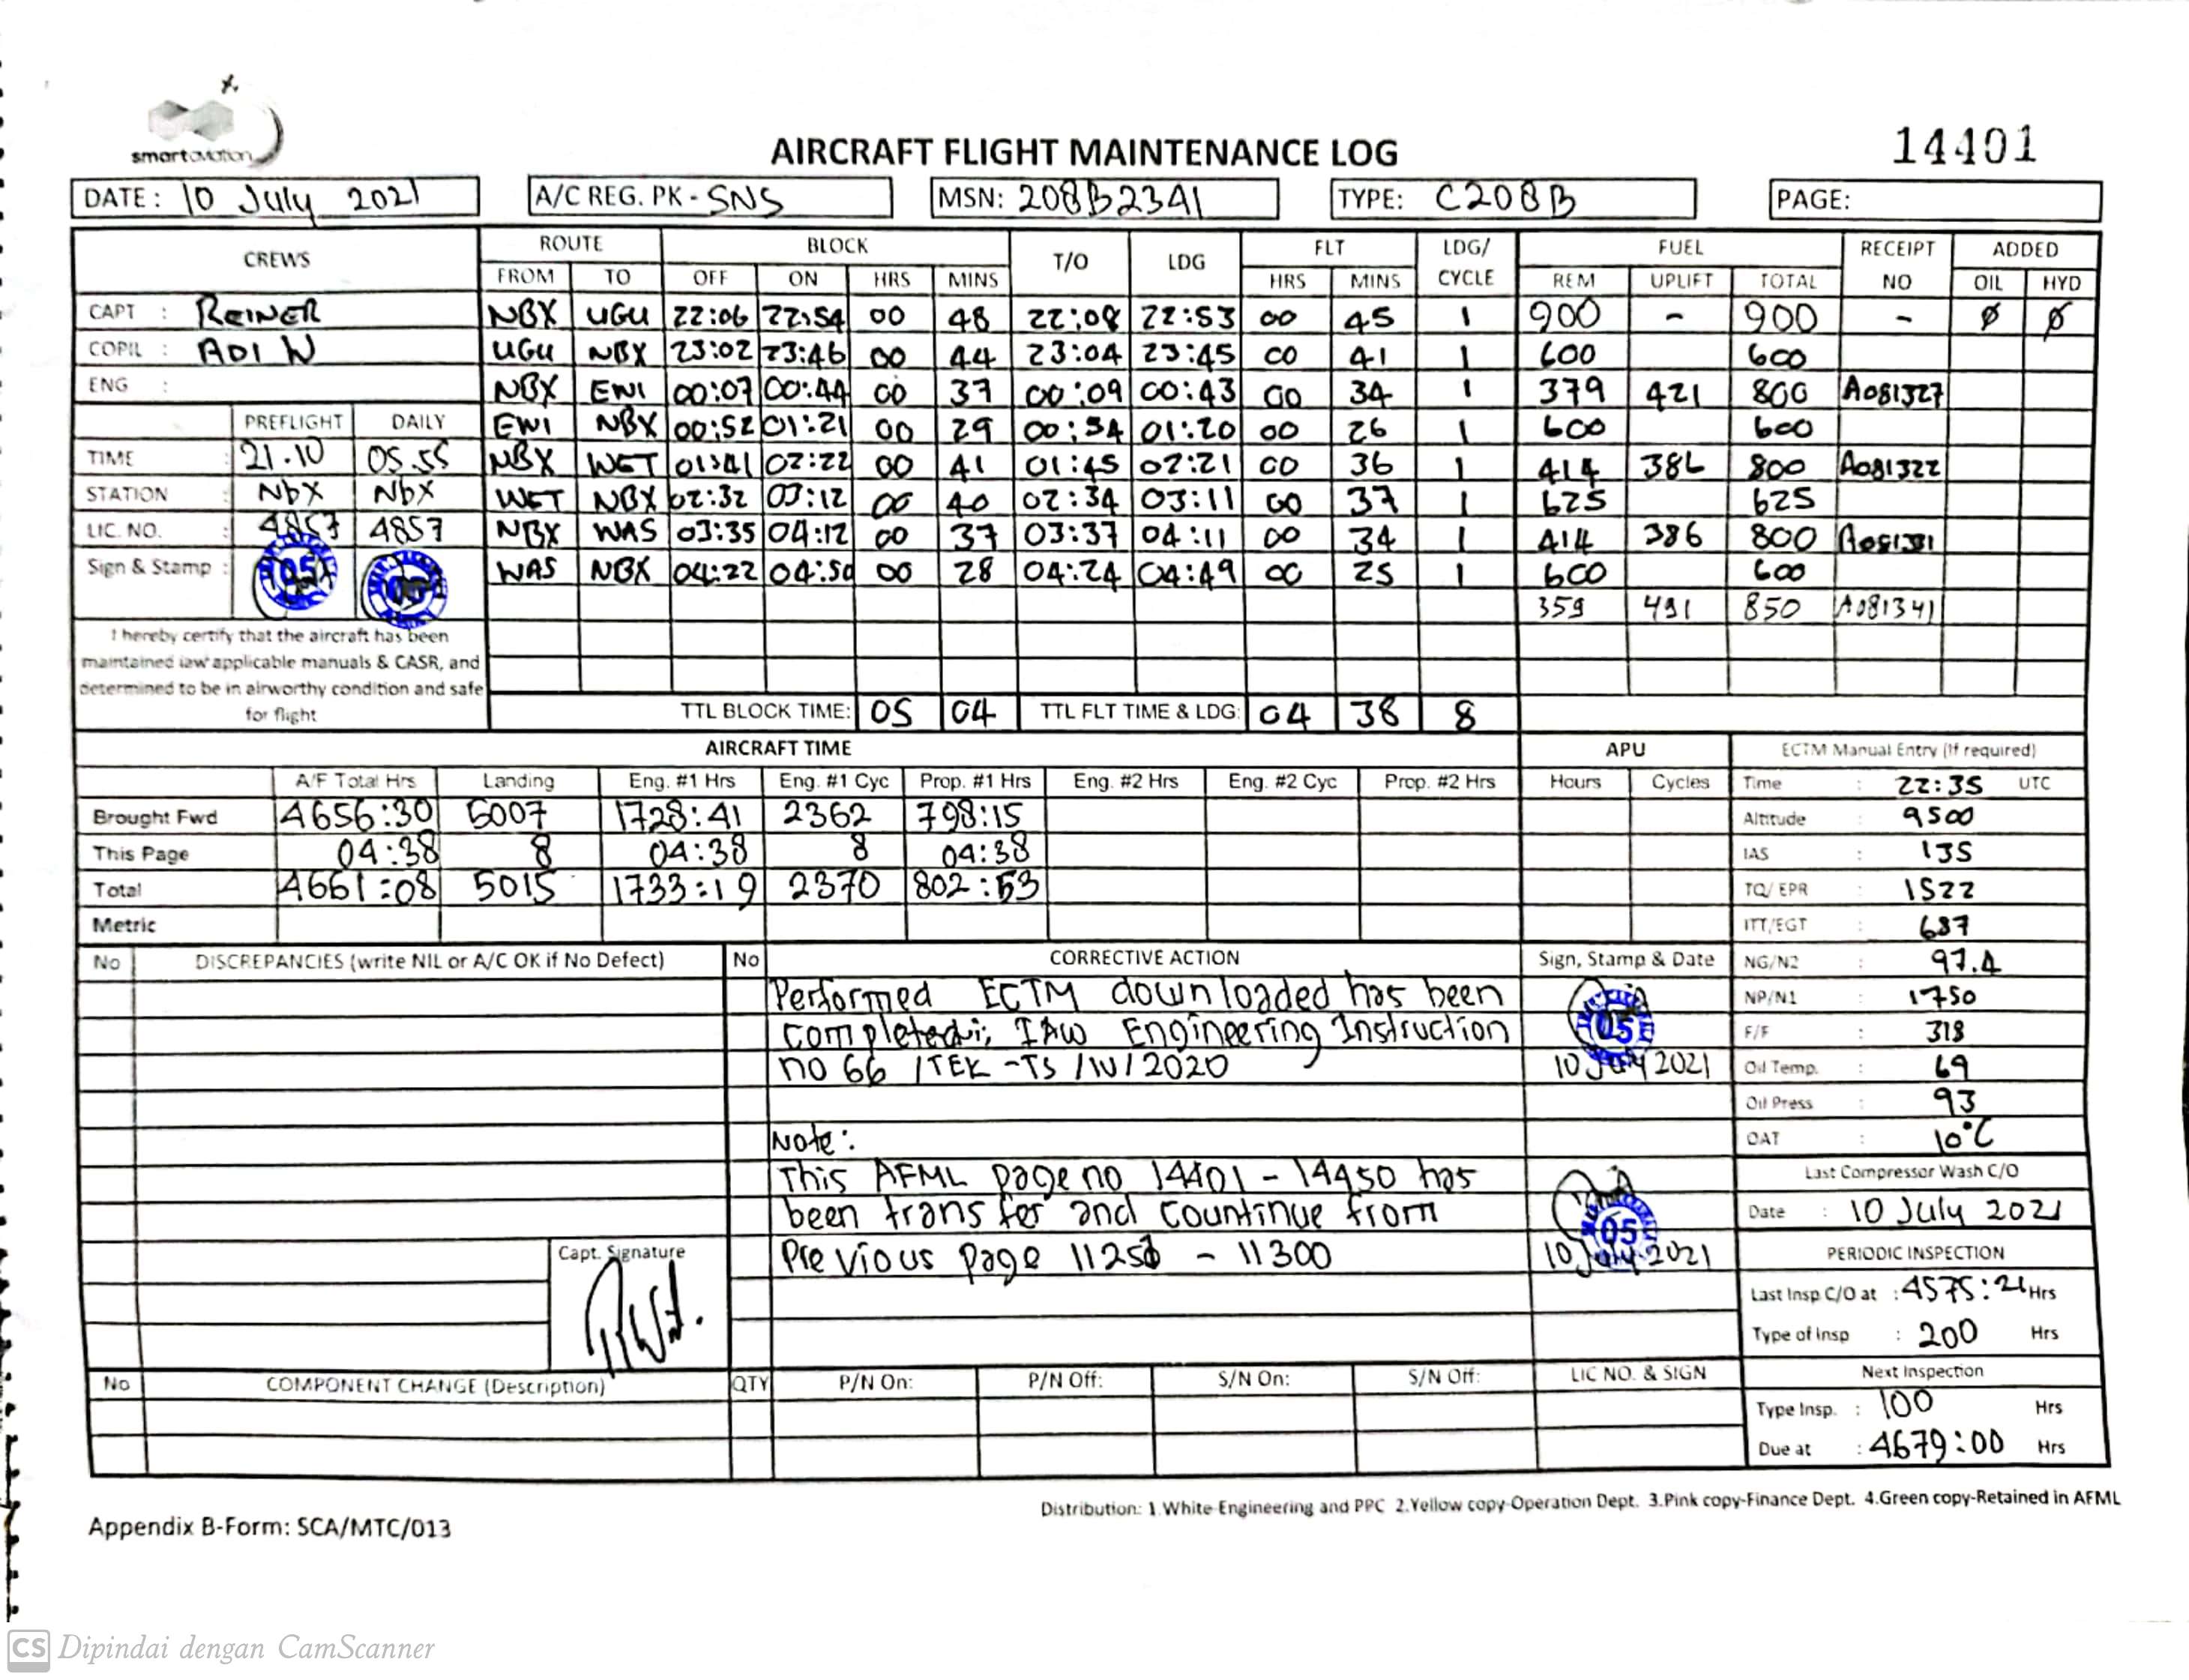 smartaviation
AIRCRAFT FLIGHT MAINTENANCE LOG
14401
DATE: 10 July 2021 A/C REG. PK - SNS MSN: 208B2341 TYPE: C208B PAGE:
CREWS ROUTE BLOCK T/O LDG FLT LDG/ FUEL RECEIPT ADDED
FROM TO OFF ON HRS MINS HRS MINS CYCLE REM UPLIFT TOTAL NO OIL HYD
CAPT : REINER NBX UGU 22:06 22:54 00 48 22:08 22:53 00 45 1 900 - 900 - Ø Ø
COPIL : ADI W UGU NBX 23:02 23:46 00 44 23:04 23:45 00 41 1 600 600
ENG : NBX EWI 00:07 00:44 00 37 00:09 00:43 00 34 1 379 421 800 A081327
PREFLIGHT DAILY EWI NBX 00:52 01:21 00 29 00:54 01:20 00 26 1 600 600
TIME : 21.10 05.55 NBX WET 01:41 02:22 00 41 01:45 02:21 00 36 1 414 386 800 A081322
STATION : NbX NbX WET NBX 02:32 03:12 00 40 02:34 03:11 00 37 1 625 625
LIC. NO. : 4857 4857 NBX WAS 03:35 04:12 00 37 03:37 04:11 00 34 1 414 386 800
Sign & Stamp : WAS NBX 04:22 04:50 00 28 04:24 04:49 00 25 1 600 600
359 491 850 A081341
I hereby certify that the aircraft has been
maintained iaw applicable manuals & CASR, and
determined to be in airworthy condition and safe
for flight
TTL BLOCK TIME: 05 04 TTL FLT TIME & LDG: 04 38 8
AIRCRAFT TIME APU ECTM Manual Entry (If required)
A/F Total Hrs Landing Eng. #1 Hrs Eng. #1 Cyc Prop. #1 Hrs Eng. #2 Hrs Eng. #2 Cyc Prop. #2 Hrs Hours Cycles Time : 22:35 UTC
Brought Fwd 4656:30 5007 1728:41 2362 798:15 Altitude : 9500
This Page 04:38 8 04:38 8 04:38 IAS : 135
Total 4661:08 5015 1733:19 2370 802:53 TQ/ EPR : 1522
Metric ITT/EGT : 687
No DISCREPANCIES (write NIL or A/C OK if No Defect) No CORRECTIVE ACTION Sign, Stamp & Date NG/N2 : 97.4
Performed ECTM downloaded has been NP/N1 : 1750
Completed IAW Engineering Instruction 05 F/F : 318
no 66 /TEK-TS /IV/2020 10 July 2021 Oil Temp. : 69
Oil Press : 93
Note: OAT : 10°C
This AFML page no 14401 - 14450 has Last Compressor Wash C/O
been transfer and countinue from 05 Date : 10 July 2021
Capt. Signature Previous page 11251 - 11300 10 July 2021 PERIODIC INSPECTION
Last Insp C/O at : 4575:21 Hrs
Type of Insp : 200 Hrs
No COMPONENT CHANGE (Description) QTY P/N On: P/N Off: S/N On: S/N Off: LIC NO. & SIGN Next Inspection
Type Insp. : 100 Hrs
Due at : 4679:00 Hrs
Distribution: 1.White-Engineering and PPC 2.Yellow copy-Operation Dept. 3.Pink copy-Finance Dept. 4.Green copy-Retained in AFML
Appendix B-Form: SCA/MTC/013
CS Dipindai dengan CamScanner